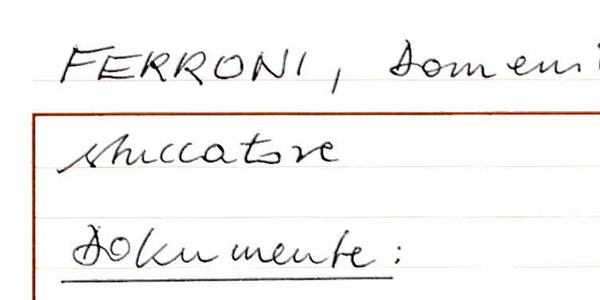 FERRONI, Domeni
stuccatore
Dokumente: